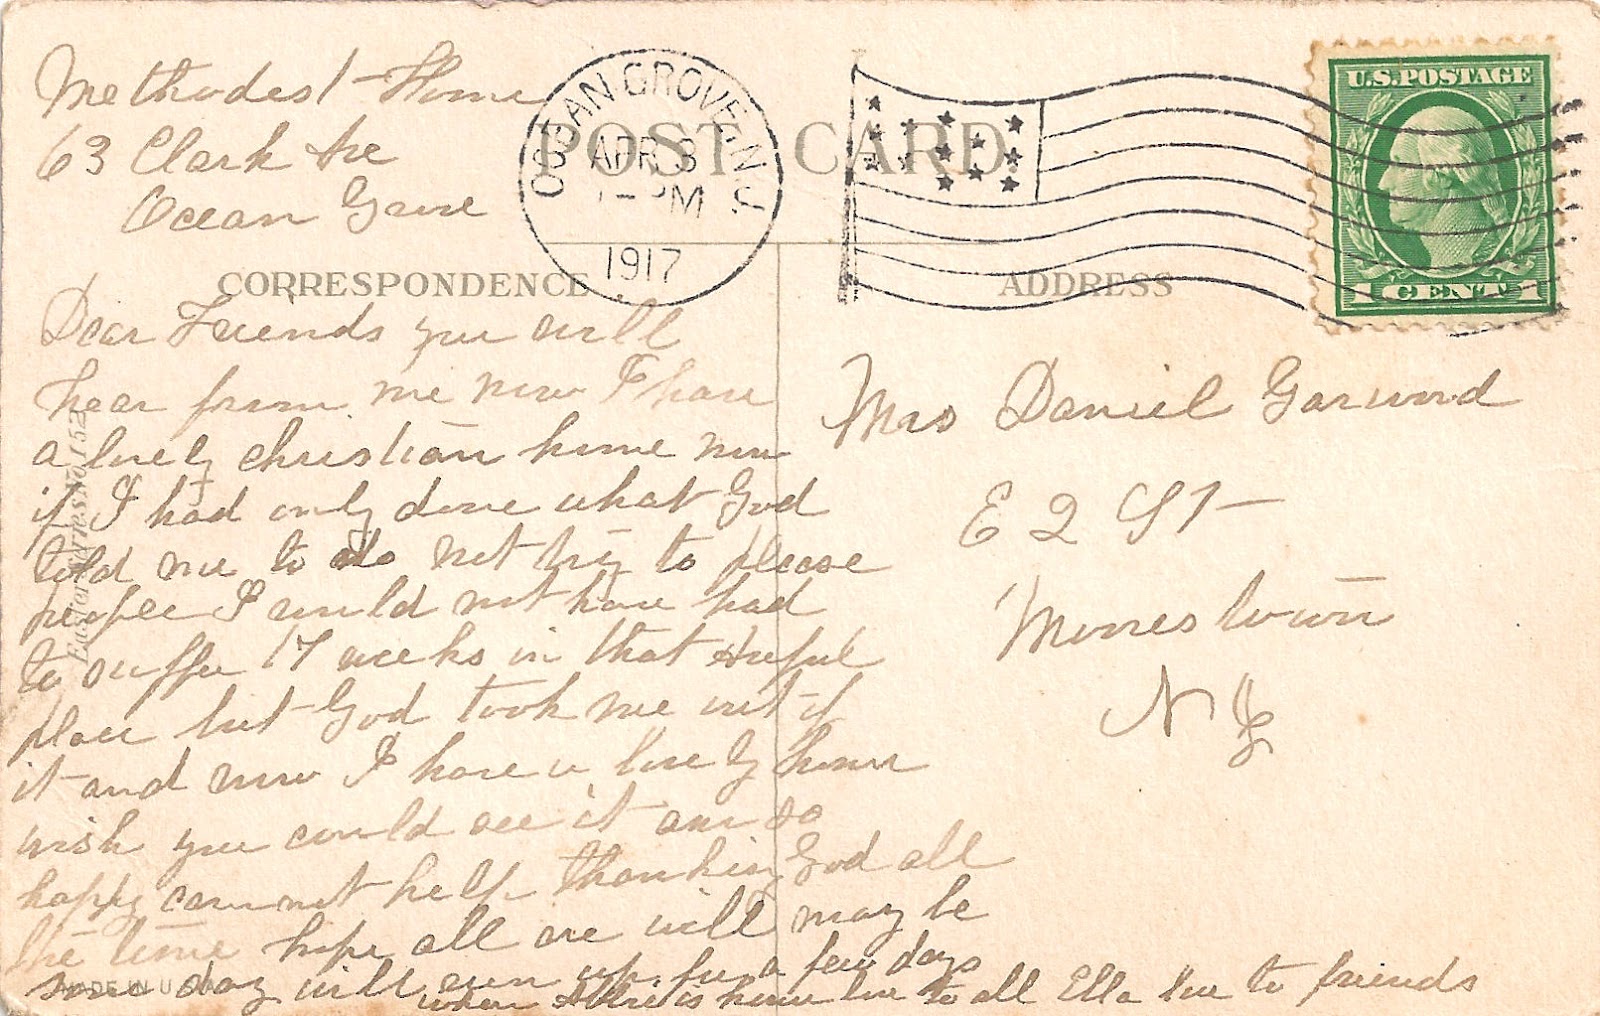 Methodest Home
63 Clark Ave
Ocean Grove
OCEAN GROVE N.J.
APR 3
PM
1917
POST CARD
U.S. POSTAGE
1 CENT 1
CORRESPONDENCE
ADDRESS
Dear Friends you will
hear from me now I have
a lovely christian home now
if I had only done what God
told me to do not try to please
people I would not have had
to suffer 17 weeks in that awful
place but God took me out of
it and now I have a lovely home
wish you could see it am so
happy can not help thanking God all
the time hope all are well may be
some day will run up for a few days
when is home love to all Ella love to friends
Mrs Daniel Garwood
E 2 St
Morrestown
N J
Easter Series No. 152
MADE IN U.S.A.